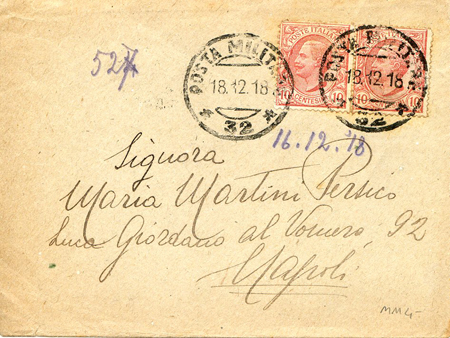 527
POSTA MILITARE
18.12.18
* 32 *
POSTE ITALIANE
10 CENTESIMI 10
POSTA MILITARE
18.12.18
* 32 *
10
10
16.12.18
Signora
Maria Martini Persico
Luca Giordano al Vomero 92
Napoli
MM4-